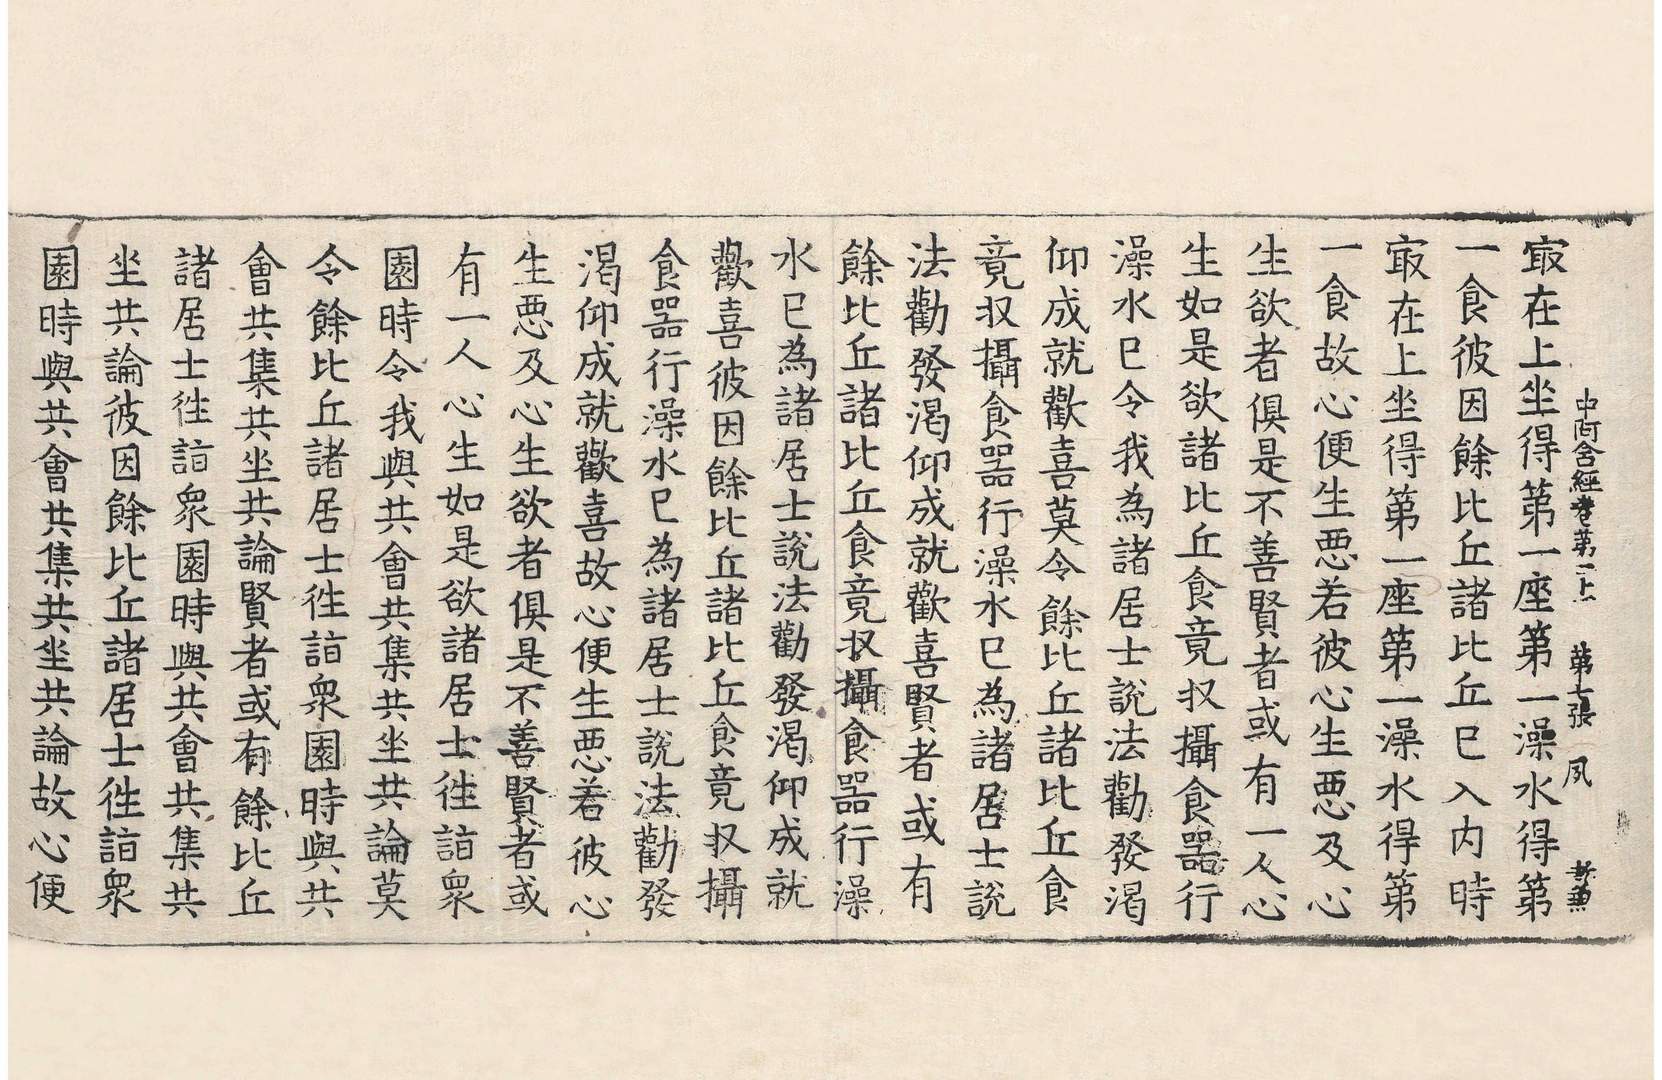 中阿含經卷第二十二 第七張 夙
㝡在上坐得第一座第一澡水得第
一食彼因餘比丘諸比丘已入内時
㝡在上坐得第一座第一澡水得第
一食故心便生悪若彼心生悪及心
生欲者俱是不善賢者或有一人心
生如是欲諸比丘食竟収攝食器行
澡水已令我為諸居士說法勸發渴
仰成就歡喜莫令餘比丘諸比丘食
竟収攝食器行澡水已為諸居士說
法勸發渴仰成就歡喜賢者或有
餘比丘諸比丘食竟収攝食器行澡
水已為諸居士說法勸發渴仰成就
歡喜彼因餘比丘諸比丘食竟収攝
食器行澡水已為諸居士說法勸發
渴仰成就歡喜故心便生悪若彼心
生悪及心生欲者俱是不善賢者或
有一人心生如是欲諸居士徃詣衆
園時令我與共會共集共坐共論莫
令餘比丘諸居士徃詣衆園時與共
會共集共坐共論賢者或有餘比丘
諸居士徃詣衆園時與共會共集共
坐共論彼因餘比丘諸居士徃詣衆
園時與共會共集共坐共論故心便